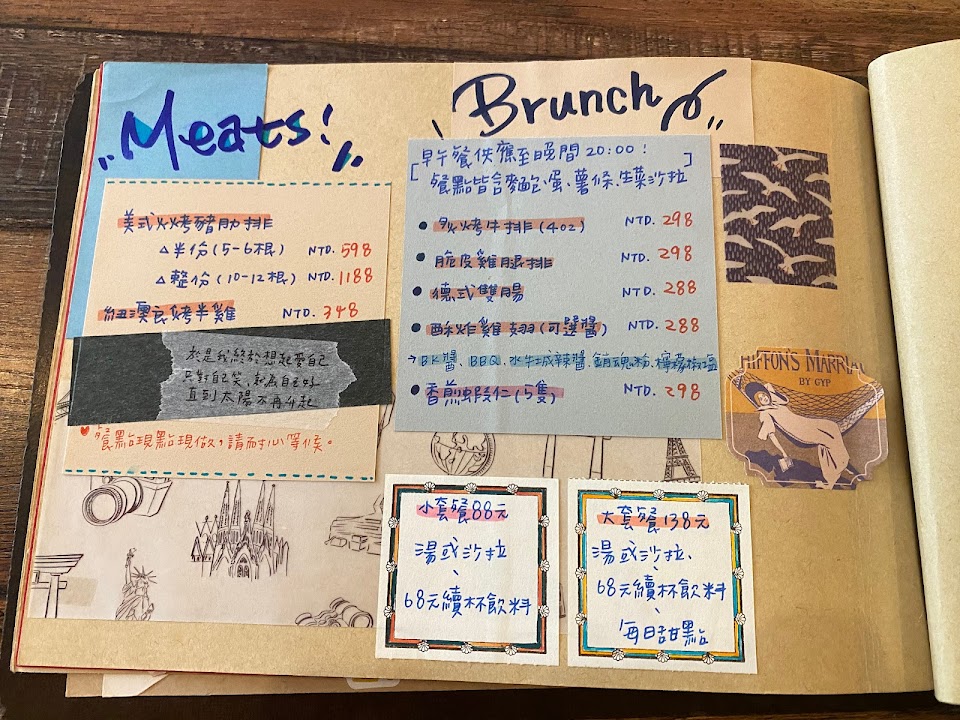 Meats!
美式火烤豬肋排
△半份(5-6根) NTD. 598
△整份(10-12根) NTD. 1188
紐澳良烤半雞 NTD. 348
於是我終於想起愛自己
只對自己笑,起為自己好
直到太陽不再升起
餐點現點現做,請耐心等候。
Brunch
早午餐供應至晚間20:00!
[餐點皆含麵包、蛋、薯條、生菜沙拉]
● 炙烤牛排(4oz) NTD. 298
● 脆皮雞腿排 NTD. 298
● 德式雙腸 NTD. 288
● 酥炸雞翅(可選醬) NTD. 288
→BK醬、BBQ、水牛城辣醬、銷魂粉、檸檬椒塩
● 香煎蝦仁(5隻) NTD. 298
小套餐88元
湯或沙拉
、
68元續杯飲料
大套餐138元
湯或沙拉、
68元續杯飲料
、
每日甜點
CHIFFON'S MARRIAG
BY GYP